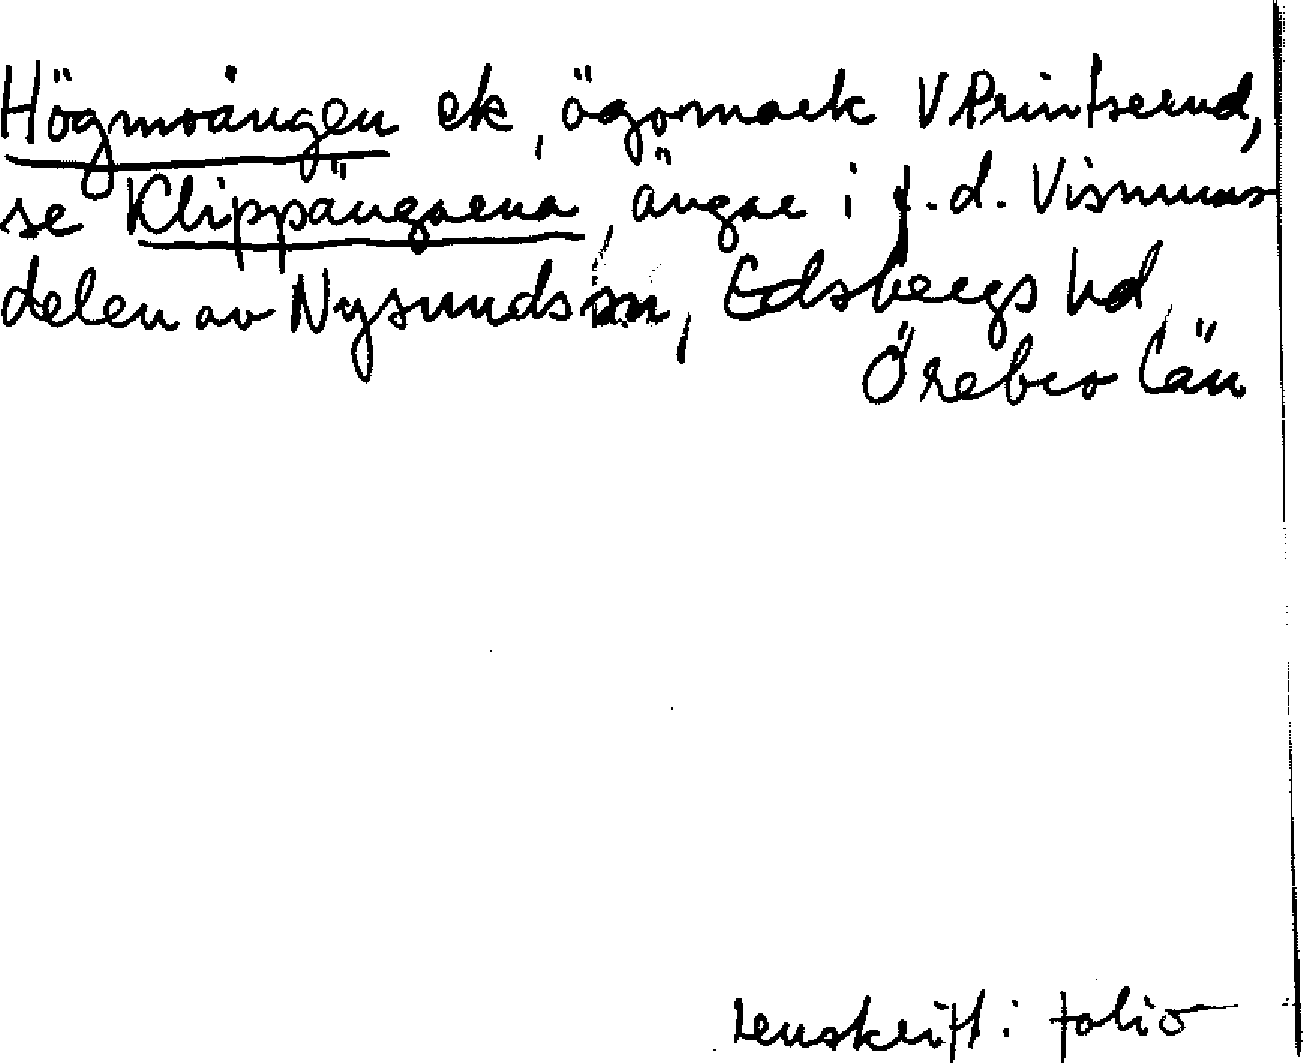 Högmoängen ek, ägomark V Printserud,
se Klippängarna, ängar i f.d. Visnums-
delen av Nysunds sn, Edsbergs hd,
Örebro län
renskrift i folio